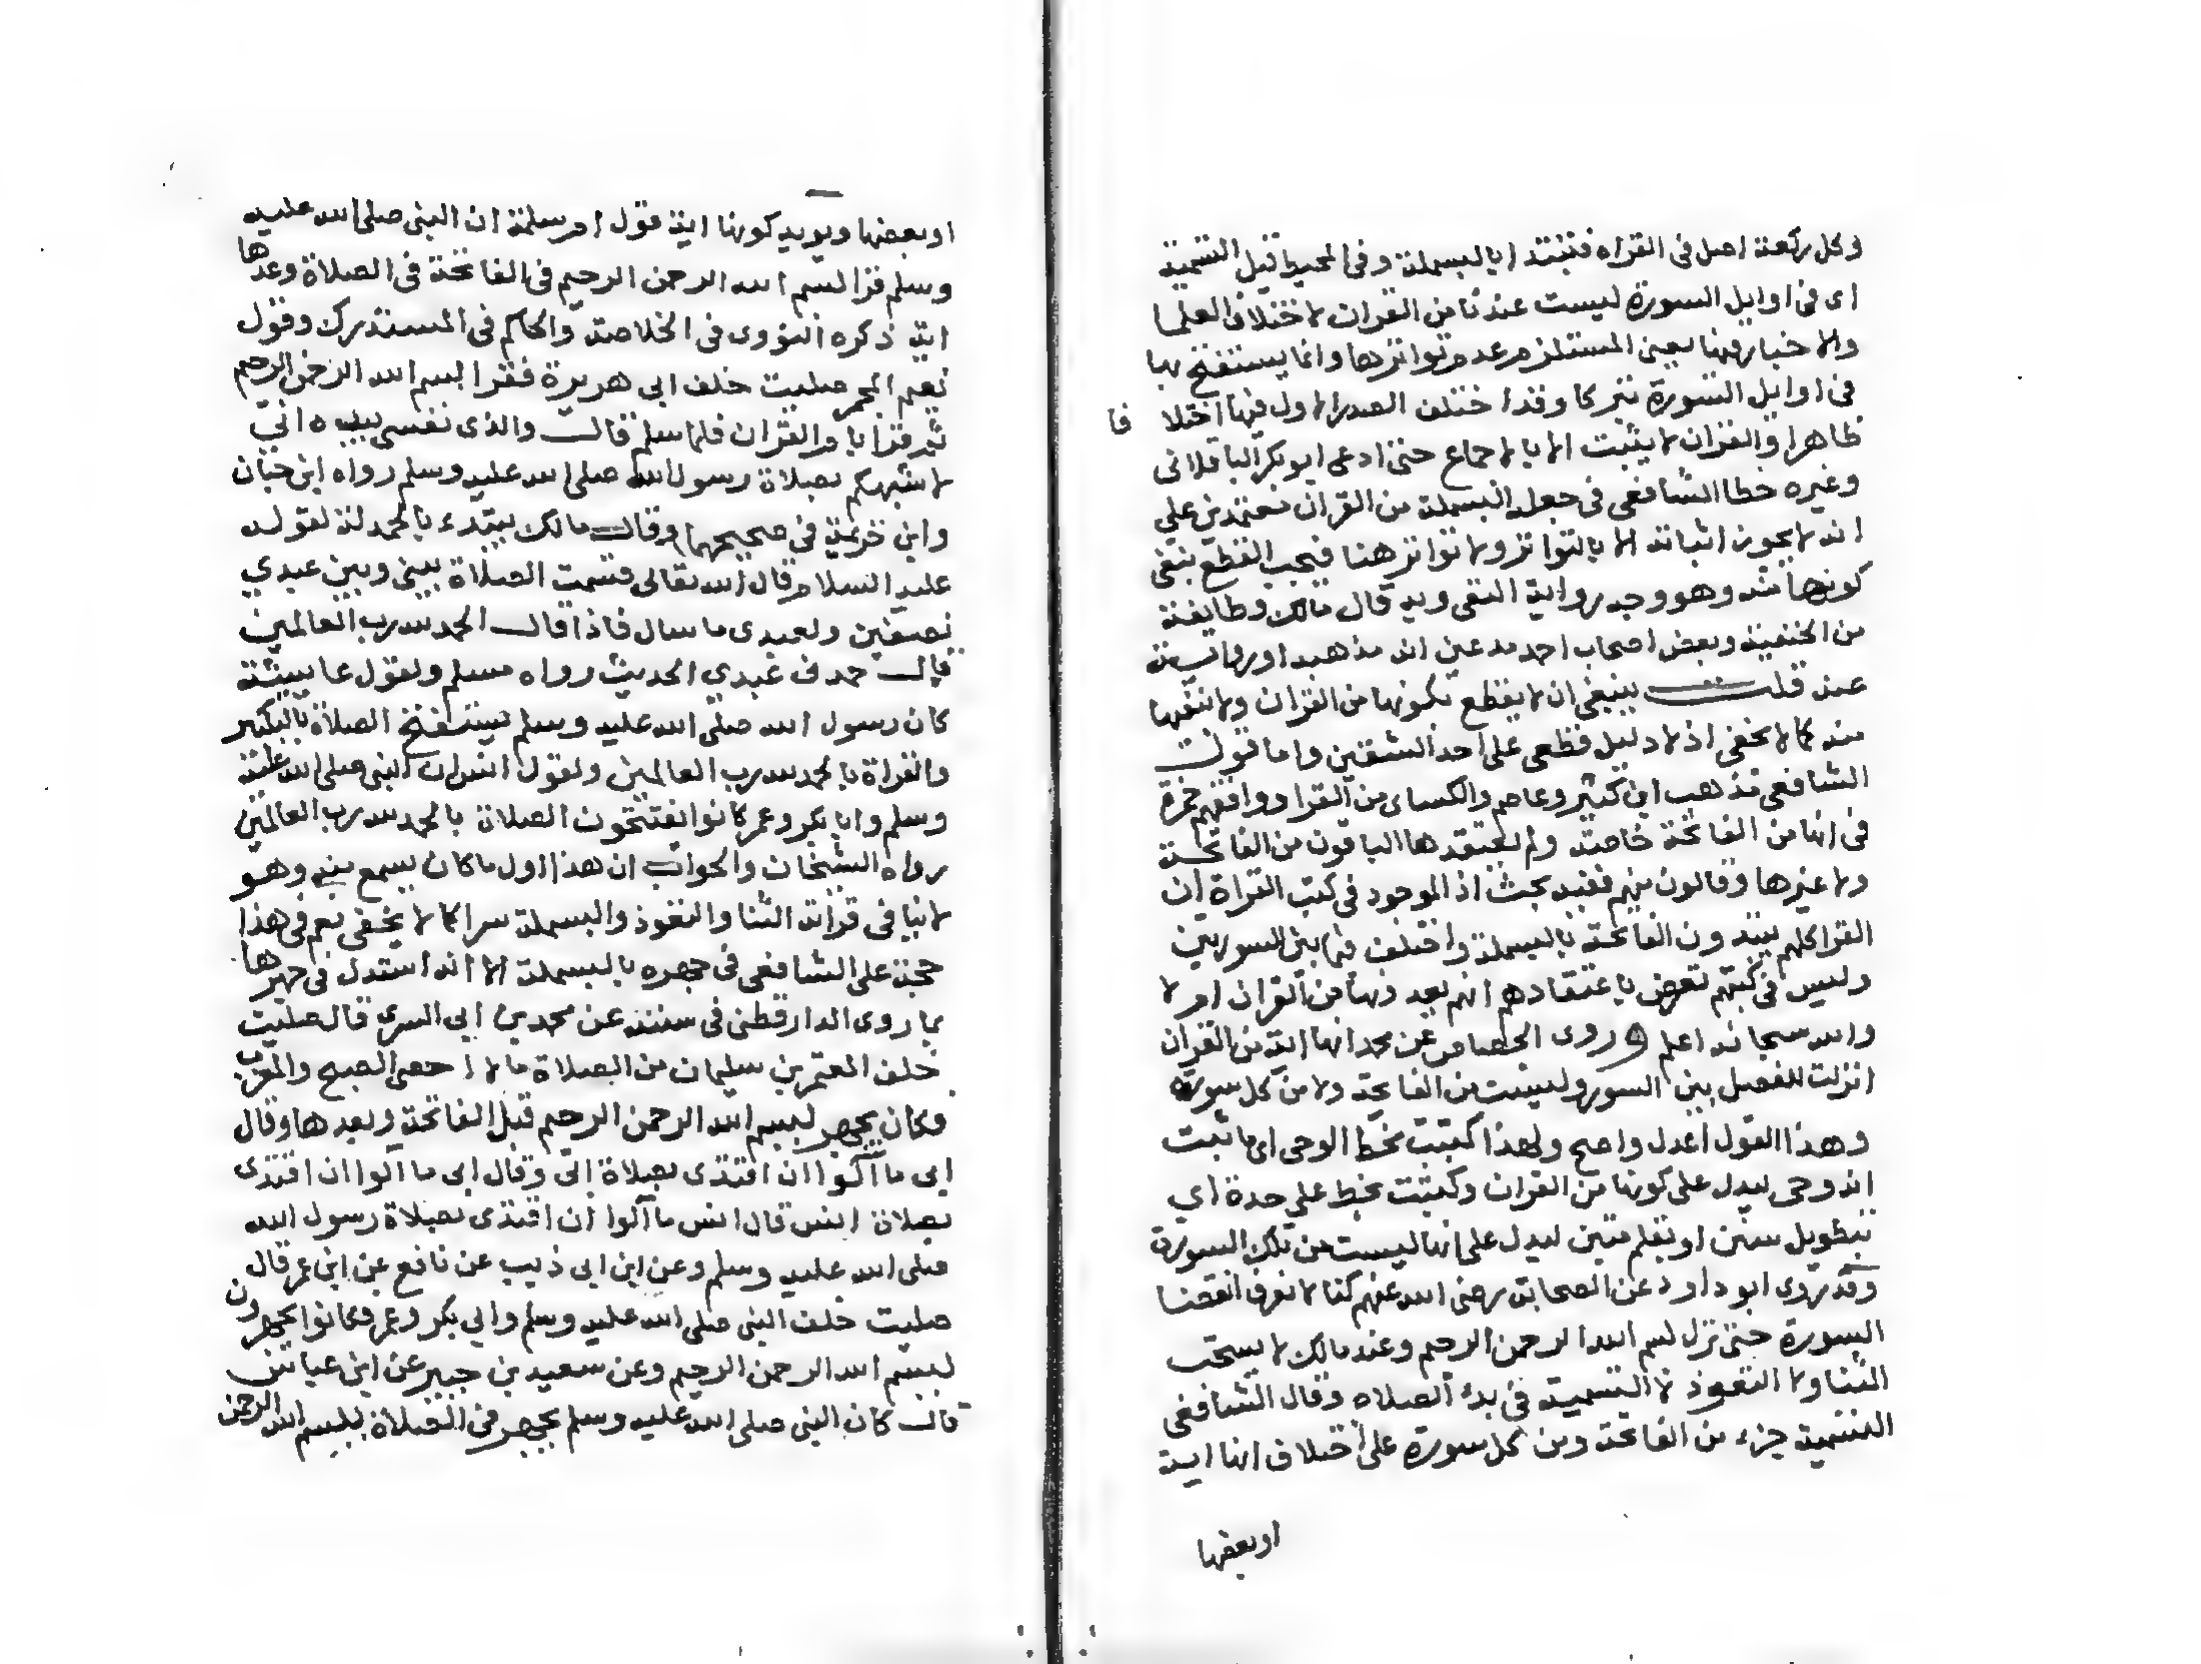 وكل ركعة اصل في القراه فتبتدا بالبسملة وفي المحيط قيل التسمية
اى فى اوايل السورة ليست عندنا من القران لاختلاف العلما
والاخبار فيها يعنى المستلزم عدم تواترها وانما يستفتح بها
فى اوايل السورة تبركا وقد اختلف الصدر الاول فيها اختلا فا
ظاهرا والقران لا يثبت الا بالاجماع حتى ادعى ابو بكر الباقلانى
وغيره خطا الشافعى فى جعل البسملة من القران معتمدين على
انه لا يجوز اثباته الا بالتواتر ولا تواتر هنا فيجب القطع بنفى
كونها منه وهو وجه رواية النفى وبه قال مالك وطايفة
من الحنفية وبعض اصحاب احمد مدعين انه مذهبه او رواية
عنه قلت ينبغى ان لا يقطع بكونها من القران ولا نفيها
منه كما لا يخفى اذ لا دليل قطعى على احد الشقين واما قول
الشافعى مذهب ابن كثير وعاصم والكساى من القرا ووافقهم حمزة
فى انها من الفاتحة خاصة ولم يعتقدها الباقون من الفاتحة
ولا غيرها وقالون منهم ففيه بحث اذ الموجود فى كتب القراة ان
القرا كلهم يبتدون الفاتحة بالبسملة واختلف فيما بين السورتين
وليس فى كتبهم تعرض باعتقادهم انهم يعدونها من القران ام لا
والله سبحانه اعلم وروى الجصاص عن محمد انها اية من القران
انزلت للفصل بين السور وليست من الفاتحة ولا من كل سورة
وهذا القول اعدل واصح ولهذا كتبت بخط الوحى اى ما ثبت
انه وحى ليدل على كونها من القران وكتبت بخط على حدة اى
بتطويل سنن او بقلم متين ليدل على انها ليست من تلك السورة
وقد روى ابو داود عن الصحابة رضى الله عنهم كنا لا نعرف انقضا
السورة حتى تزل بسم الله الرحمن الرحيم وعند مالك لا يستحب
الثنا ولا التعوذ لا التسمية فى بدء الصلاه وقال الشافعى
التسمية جزء من الفاتحة ومن كل سورة على اختلاف انها اية
او بعضها
او بعضها ويويد كونها اية قول ام سلمة ان النبى صلى الله عليه
وسلم قرا بسم الله الرحمن الرحيم فى الفاتحة فى الصلاة وعدها
اية ذكره النووى فى الخلاصة والحاكم فى المستدرك وقول
نعيم المجمر صليت خلف ابى هريرة فقرا بسم الله الرحمن الرحيم
ثم قرا بام القران فلما سلم قال والذى نفسى بيده انى
لا شبهكم بصلاة رسول الله صلى الله عليه وسلم رواه ابن حبان
وابن خزيمة فى صحيحهما وقال مالك يبتدء بالحمد لله لقوله
عليه السلام قال الله تعالى قسمت الصلاة بينى وبين عبدي
نصفين ولعبدى ما سال فاذا قال الحمد لله رب العالمين
قال حمدنى عبدي الحديث رواه مسلم ولقول عايشة
كان رسول الله صلى الله عليه وسلم يستفتح الصلاة بالتكبير
والقراة بالحمد لله رب العالمين ولقول انس ان النبى صلى الله عليه
وسلم وابا بكر وعمر كانوا يفتتحون الصلاة بالحمد لله رب العالمين
رواه الشيخان والجواب ان هذا اول ما كان يسمع منه وهو
لا ينافى قراته الثنا والتعوذ والبسملة سرا كما لا يخفى نعم فى هذا
حجة على الشافعى فى جهره بالبسملة الا انه استدل فى جهرها
بما روى الدارقطنى فى سننه عن محمد بن ابى السرى قال صليت
خلف المعتمر بن سليمان من الصلاة مالا احصى الصبح والمغرب
وكان يجهر ببسم الله الرحمن الرحيم قبل الفاتحة وبعدها وقال
ابى ما آلوا ان اقتدى بصلاة ابى وقال ابى ما آلوا ان اقتدى
بصلاة انس قال انس ما آلوا ان اقتدى بصلاة رسول الله
صلى الله عليه وسلم وعن ابن ابى ذيب عن نافع عن ابن عمر قال
صليت خلف النبى صلى الله عليه وسلم وابي بكر وعمر فكانوا يجهرون
ببسم الله الرحمن الرحيم وعن سعيد بن جبير عن ابن عباس
قال كان النبى صلى الله عليه وسلم يجهر فى الصلاة ببسم الله الرحمن